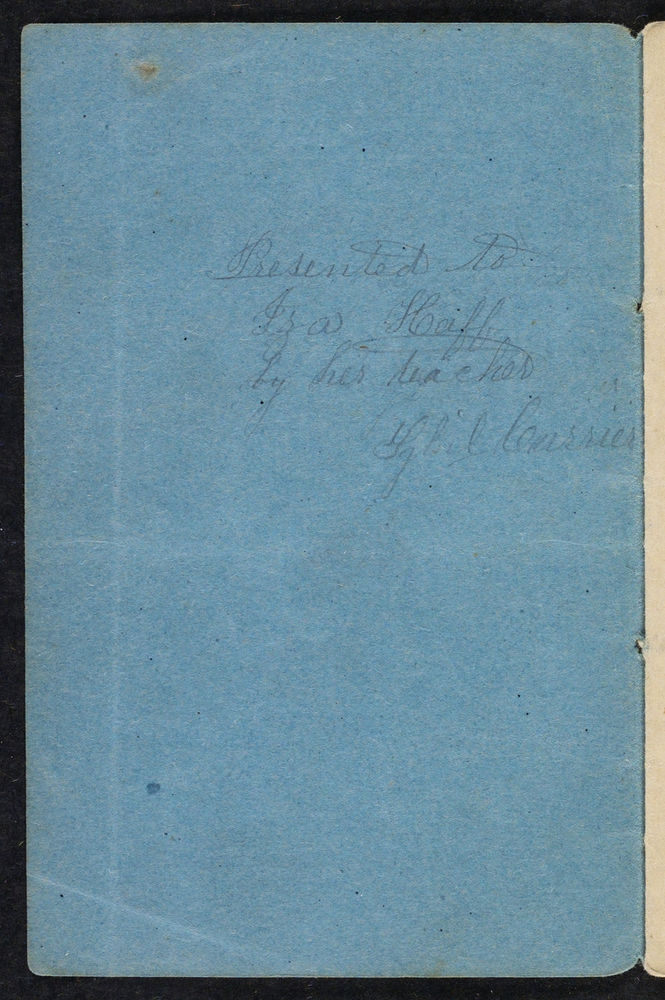 Presented to
Iza Haff
by her teacher
Sybil Currier